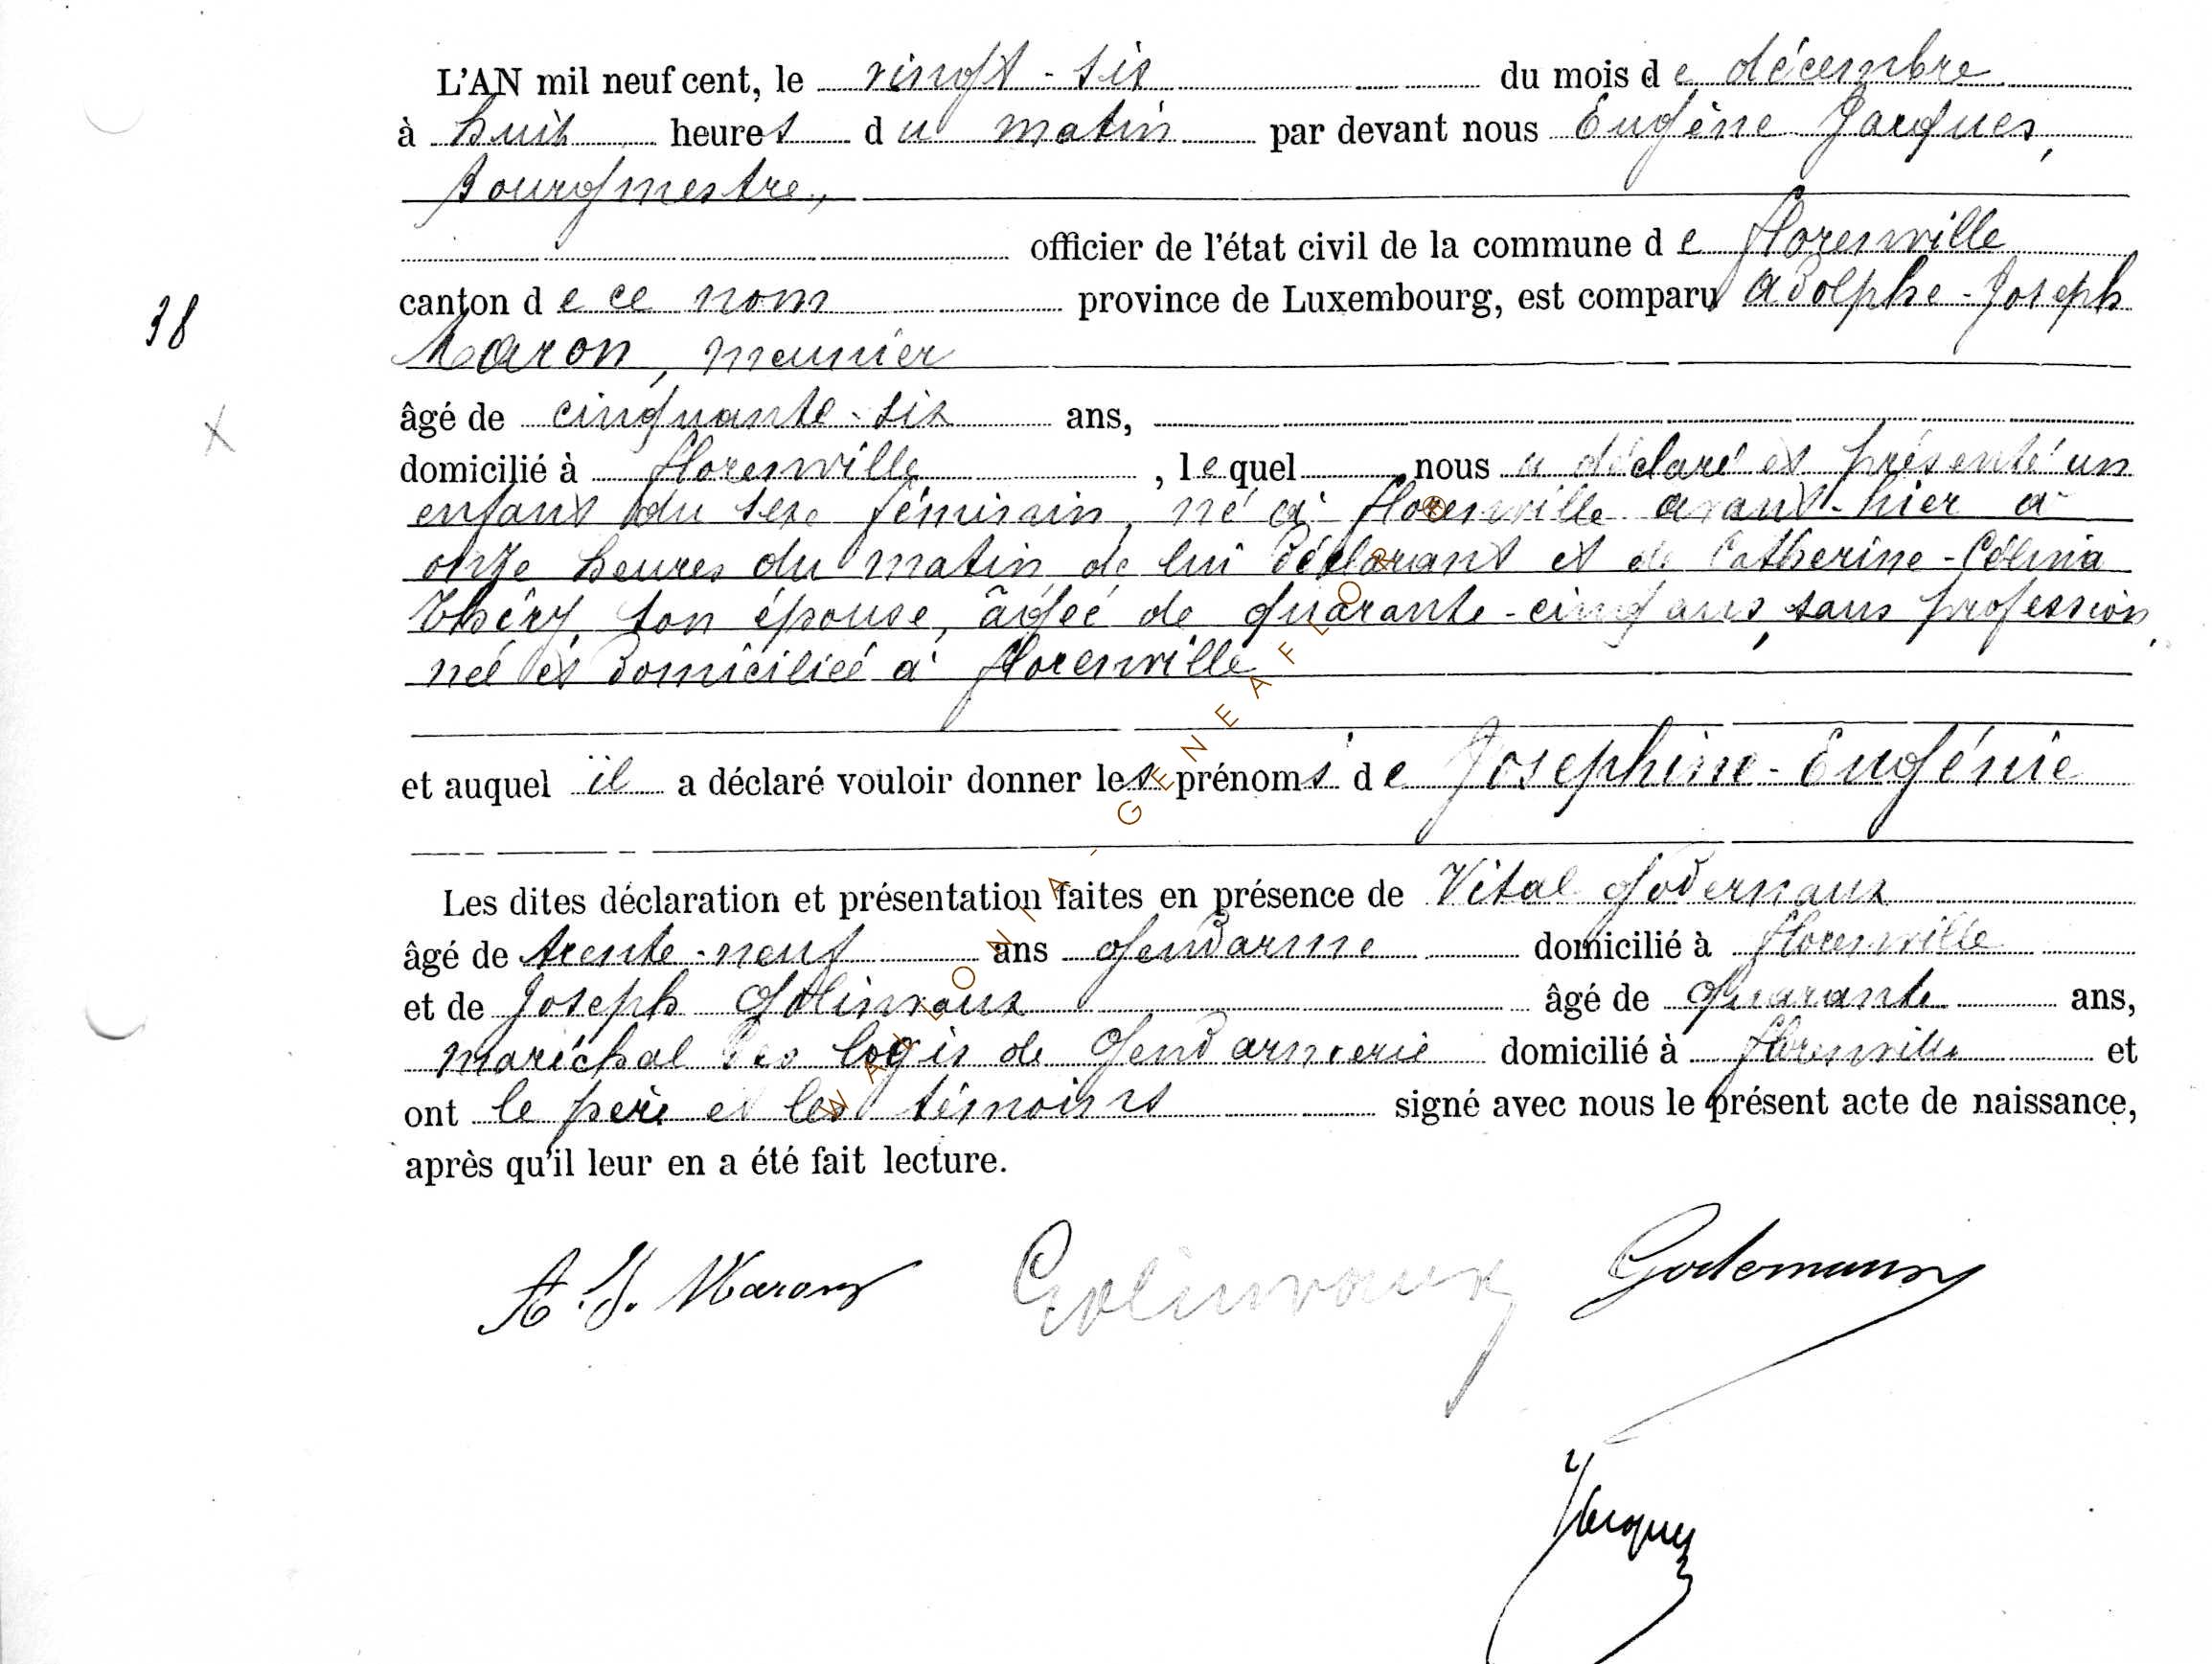 L'AN mil neuf cent, le vingt-six du mois de décembre
à huit heures du matin par devant nous Eugène Jacques,
Bourgmestre,
officier de l'état civil de la commune de Florenville
38
canton de ce nom province de Luxembourg, est comparu Adolphe-Joseph
Maron, meunier
âgé de cinquante-six ans,
X
domicilié à Florenville, lequel nous a déclaré et présenté un
enfant du sexe féminin, né à Florenville avant-hier à
onze heures du matin de lui déclarant et de Catherine-Célinia
Théry, son épouse, âgée de quarante-cinq ans, sans profession,
née et domiciliée à Florenville
et auquel il a déclaré vouloir donner les prénoms de Joséphine-Eugénie
Les dites déclaration et présentation faites en présence de Vital Godernaux
âgé de trente-neuf ans gendarme domicilié à Florenville
et de Joseph Golinvaux âgé de quarante ans,
maréchal des logis de gendarmerie domicilié à Florenville et
ont le père et les témoins signé avec nous le présent acte de naissance,
après qu'il leur en a été fait lecture.
A. J. Maron Golinvaux
Jacques
WALLONIA - GENEAFLOR ®